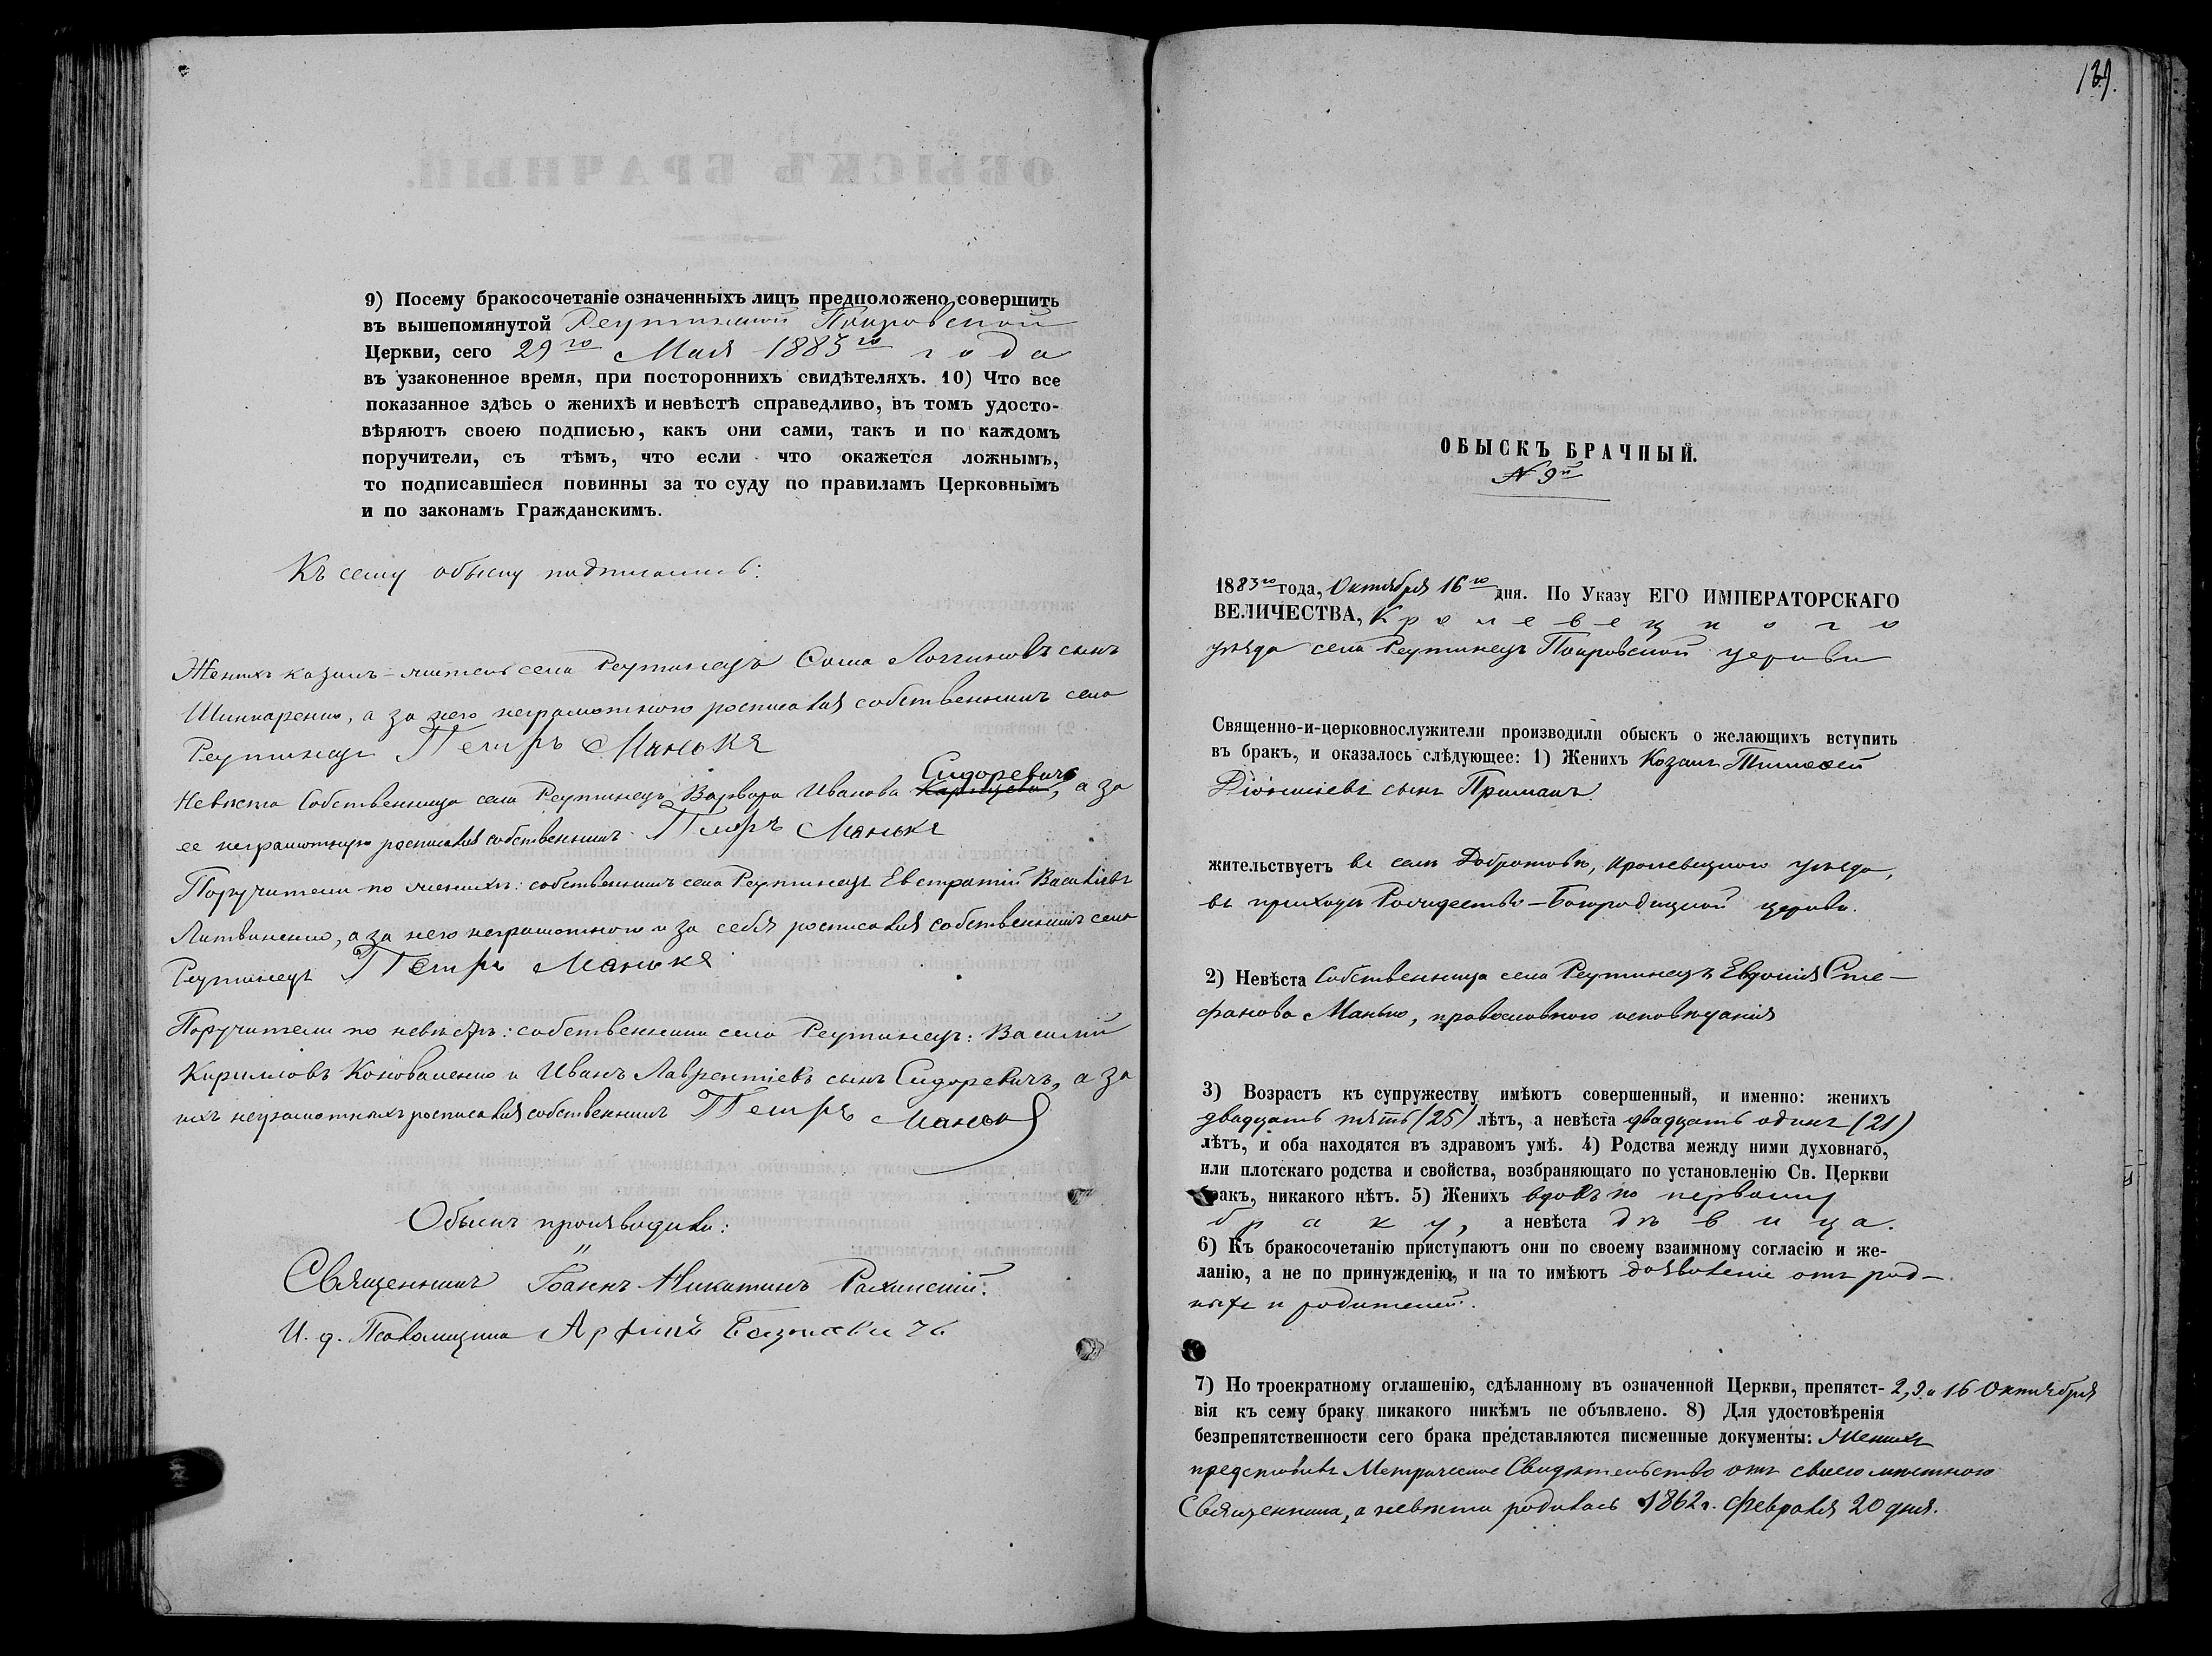 9) Посему бракосочетаніе означенныхъ лицъ предположено совершить
въ вышепомянутой Реутинской Покровской
Церкви, сего 29го Мая 1883го года
въ узаконенное время, при постороннихъ свидѣтеляхъ. 10) Что все
показанное здѣсь о женихѣ и невѣстѣ справедливо, въ томъ удосто-
вѣряютъ своею подписью, какъ они сами, такъ и по каждомъ
поручители, съ тѣмъ, что если что окажется ложнымъ,
то подписавшіеся повинны за то суду по правиламъ Церковнымъ
и по законамъ Гражданскимъ.
Къ сему обыску подписались:
Женихъ козакъ-житель села Реутинецъ Сома Логгиновъ сынъ
Шинкаренко, а за него неграмотного росписался собственникъ села
Реутинецъ Петръ Манька
Сидоревичъ
Невѣста Собственница села Реутинецъ Варвара Иванова Карпцева, а за
ее неграмотную росписался собственникъ Петръ Манька
Поручители по женихѣ: собственникъ села Реутинецъ Евстратій Васильевъ
Литвиненко, а за него неграмотного и за себя росписался собственникъ села
Реутинецъ Петръ Манька
Поручители по невѣстѣ: собственники села Реутинецъ: Василій
Кирилловъ Коноваленко и Иванъ Лаврентіевъ сынъ Сидоревичъ, а за
нихъ неграмотныхъ росписался собственникъ Петръ Манька
Обыскъ производили:
Священникъ Іоаннъ Никитинъ Рахинскій.
И. д. Псаломщика
139.
ОБЫСКЪ БРАЧНЫЙ.
№ 9й
1883го года, Октября 16го дня. По Указу ЕГО ИМПЕРАТОРСКАГО
ВЕЛИЧЕСТВА, Кролевецкого
уѣзда села Реутинецъ Покровской церкви
Священно-и-церковнослужители производили обыскъ о желающихъ вступить
въ бракъ, и оказалось слѣдующее: 1) Женихъ Козакъ Тимоѳей
Діонисіевъ сынъ Примакъ.
жительствуетъ въ селѣ Добротовѣ, Кролевецкого уѣзда,
въ приходѣ Рождество-Богородицкой церкви.
2) Невѣста Собственница села Реутинецъ Евдокія Сте-
фанова Манько, православного исповѣданія
3) Возрастъ къ супружеству имѣютъ совершенный, и именно: женихъ
двадцать пять (25) лѣтъ, а невѣста двадцать одинъ (21)
лѣтъ, и оба находятся въ здравомъ умѣ. 4) Родства между ними духовнаго,
или плотскаго родства и свойства, возбраняющаго по установленію Св. Церкви
бракъ, никакого нѣтъ. 5) Женихъ вдовъ по первому
браку, а невѣста дѣвица.
6) Къ бракосочетанію приступаютъ они по своему взаимному согласію и же-
ланію, а не по принужденію, и на то имѣютъ дозволеніе отъ род-
ныхъ и родителей.
7) По троекратному оглашенію, сдѣланному въ означенной Церкви, препятст- 2, 9 и 16 Октября
вія къ сему браку никакого никѣмъ не объявлено. 8) Для удостовѣренія
безпрепятственности сего брака представляются писменные документы: Женихъ
представилъ Метрическое Свидѣтельство отъ своего мѣстного
Священника, а невѣста родилась 1862 г. Февраля 20 дня.